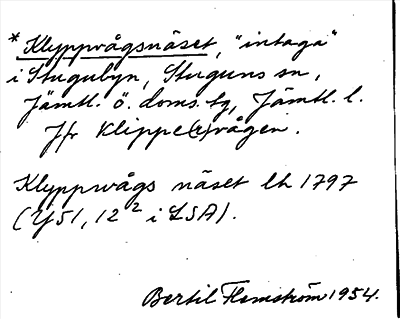 * Klyppvågsnäset, "intaga"
i Stugubyn, Stuguns sn,
Jämtl. ö. doms. tg, Jämtl. l.
Jfr Klippe(r)vågen.
Klyppwågs näset lh 1797
(Y51, 12² i LSA).
Bertil Flemström 1954.